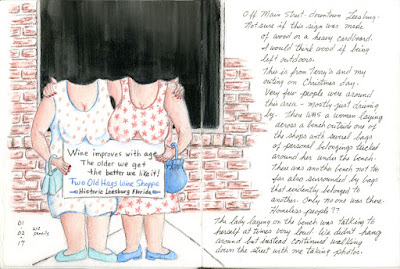 Wine improves with age
The older we get
the better we like it!
Two Old Hags Wine Shoppe
Historic Leesburg Florida
01
02
17
Off Main Street - downtown Leesburg.
Not sure if this sign was made
of wood or a heavy cardboard.
I would think wood if being
left outdoors.
This is from Terry's and my
outing on Christmas day.
Very few people were around
this area - mostly just driving
by. There WAS a woman laying
across a bench outside one of
the shops with several bags
of personal belongings tucked
around her under the bench.
There was another bench not too
far also surrounded by bags
that evidently belonged to
another. Only no one was there.
Homeless people??
The lady laying on the bench was talking to
herself at times very loud. We didn't hang
around but instead continued walking
down the street with me taking photos.